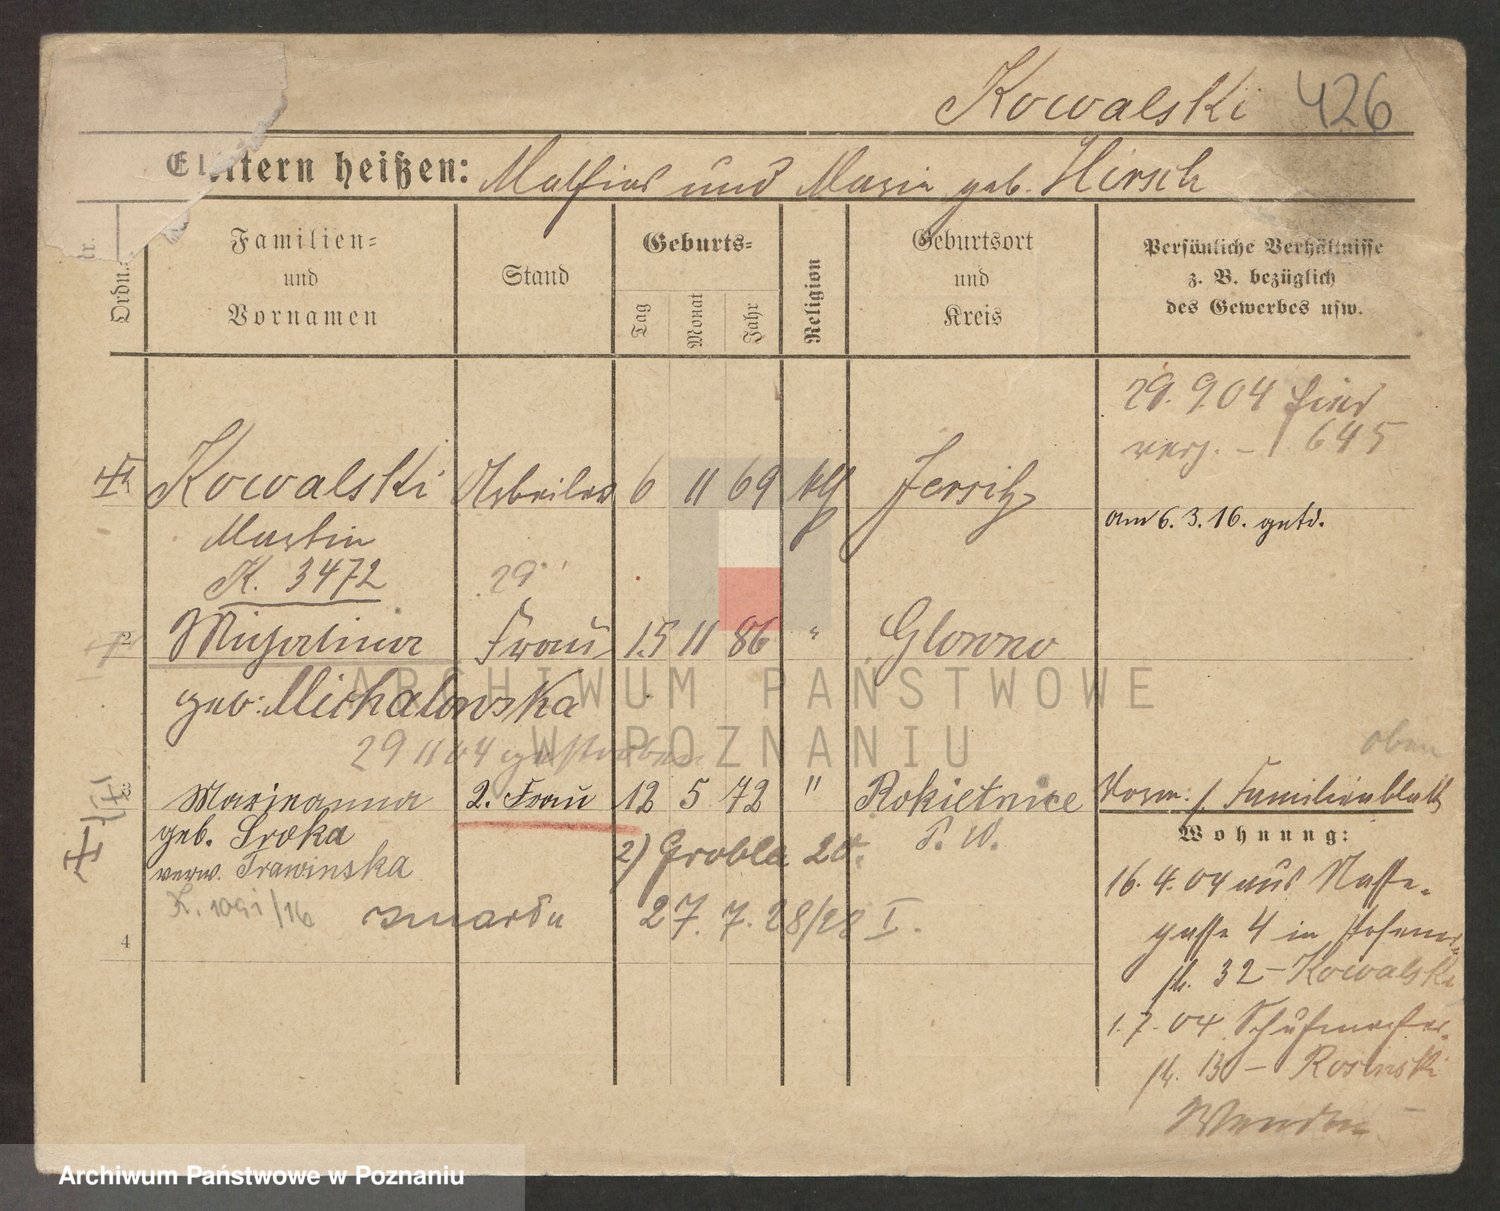 Kowalski 426
Eltern heißen: Mathias und Maria geb. Hirsch
Ordn. Nr.
Familien-
und
Vornamen
Stand
Geburts-
Tag
Monat
Jahr
Religion
Geburtsort
und
Kreis
Persönliche Verhältnisse
z. B. bezüglich
des Gewerbes usw.
29. 9.04 hier
verz. - 645
Kowalski Arbeiter 6 11 69 kth Jersitz
am 6. 3. 16. gest.
Martin
K. 3472
29
2 Michalina Frau 15 11 86 " Glowno
geb. Michalowska
29 11 04 gestorben
oben
3 Marianna 2. Frau 12 5 72 " Rokietnice Verm: Familienblatt
geb. Sroka P. W.
verw. Trawinska 2) Grobla 20.
K. /16 zmarła 27. 7. 28/28 I.
4
Wohnung:
16. 4. 04 aus Nasse-
gasse 4 in Posener-
st. 32 - Kowalski
1. 7. 04 Schuhmacher-
st. 13 - Rosinski
Wenden
ARCHIWUM PAŃSTWOWE
W POZNANIU
Archiwum Państwowe w Poznaniu